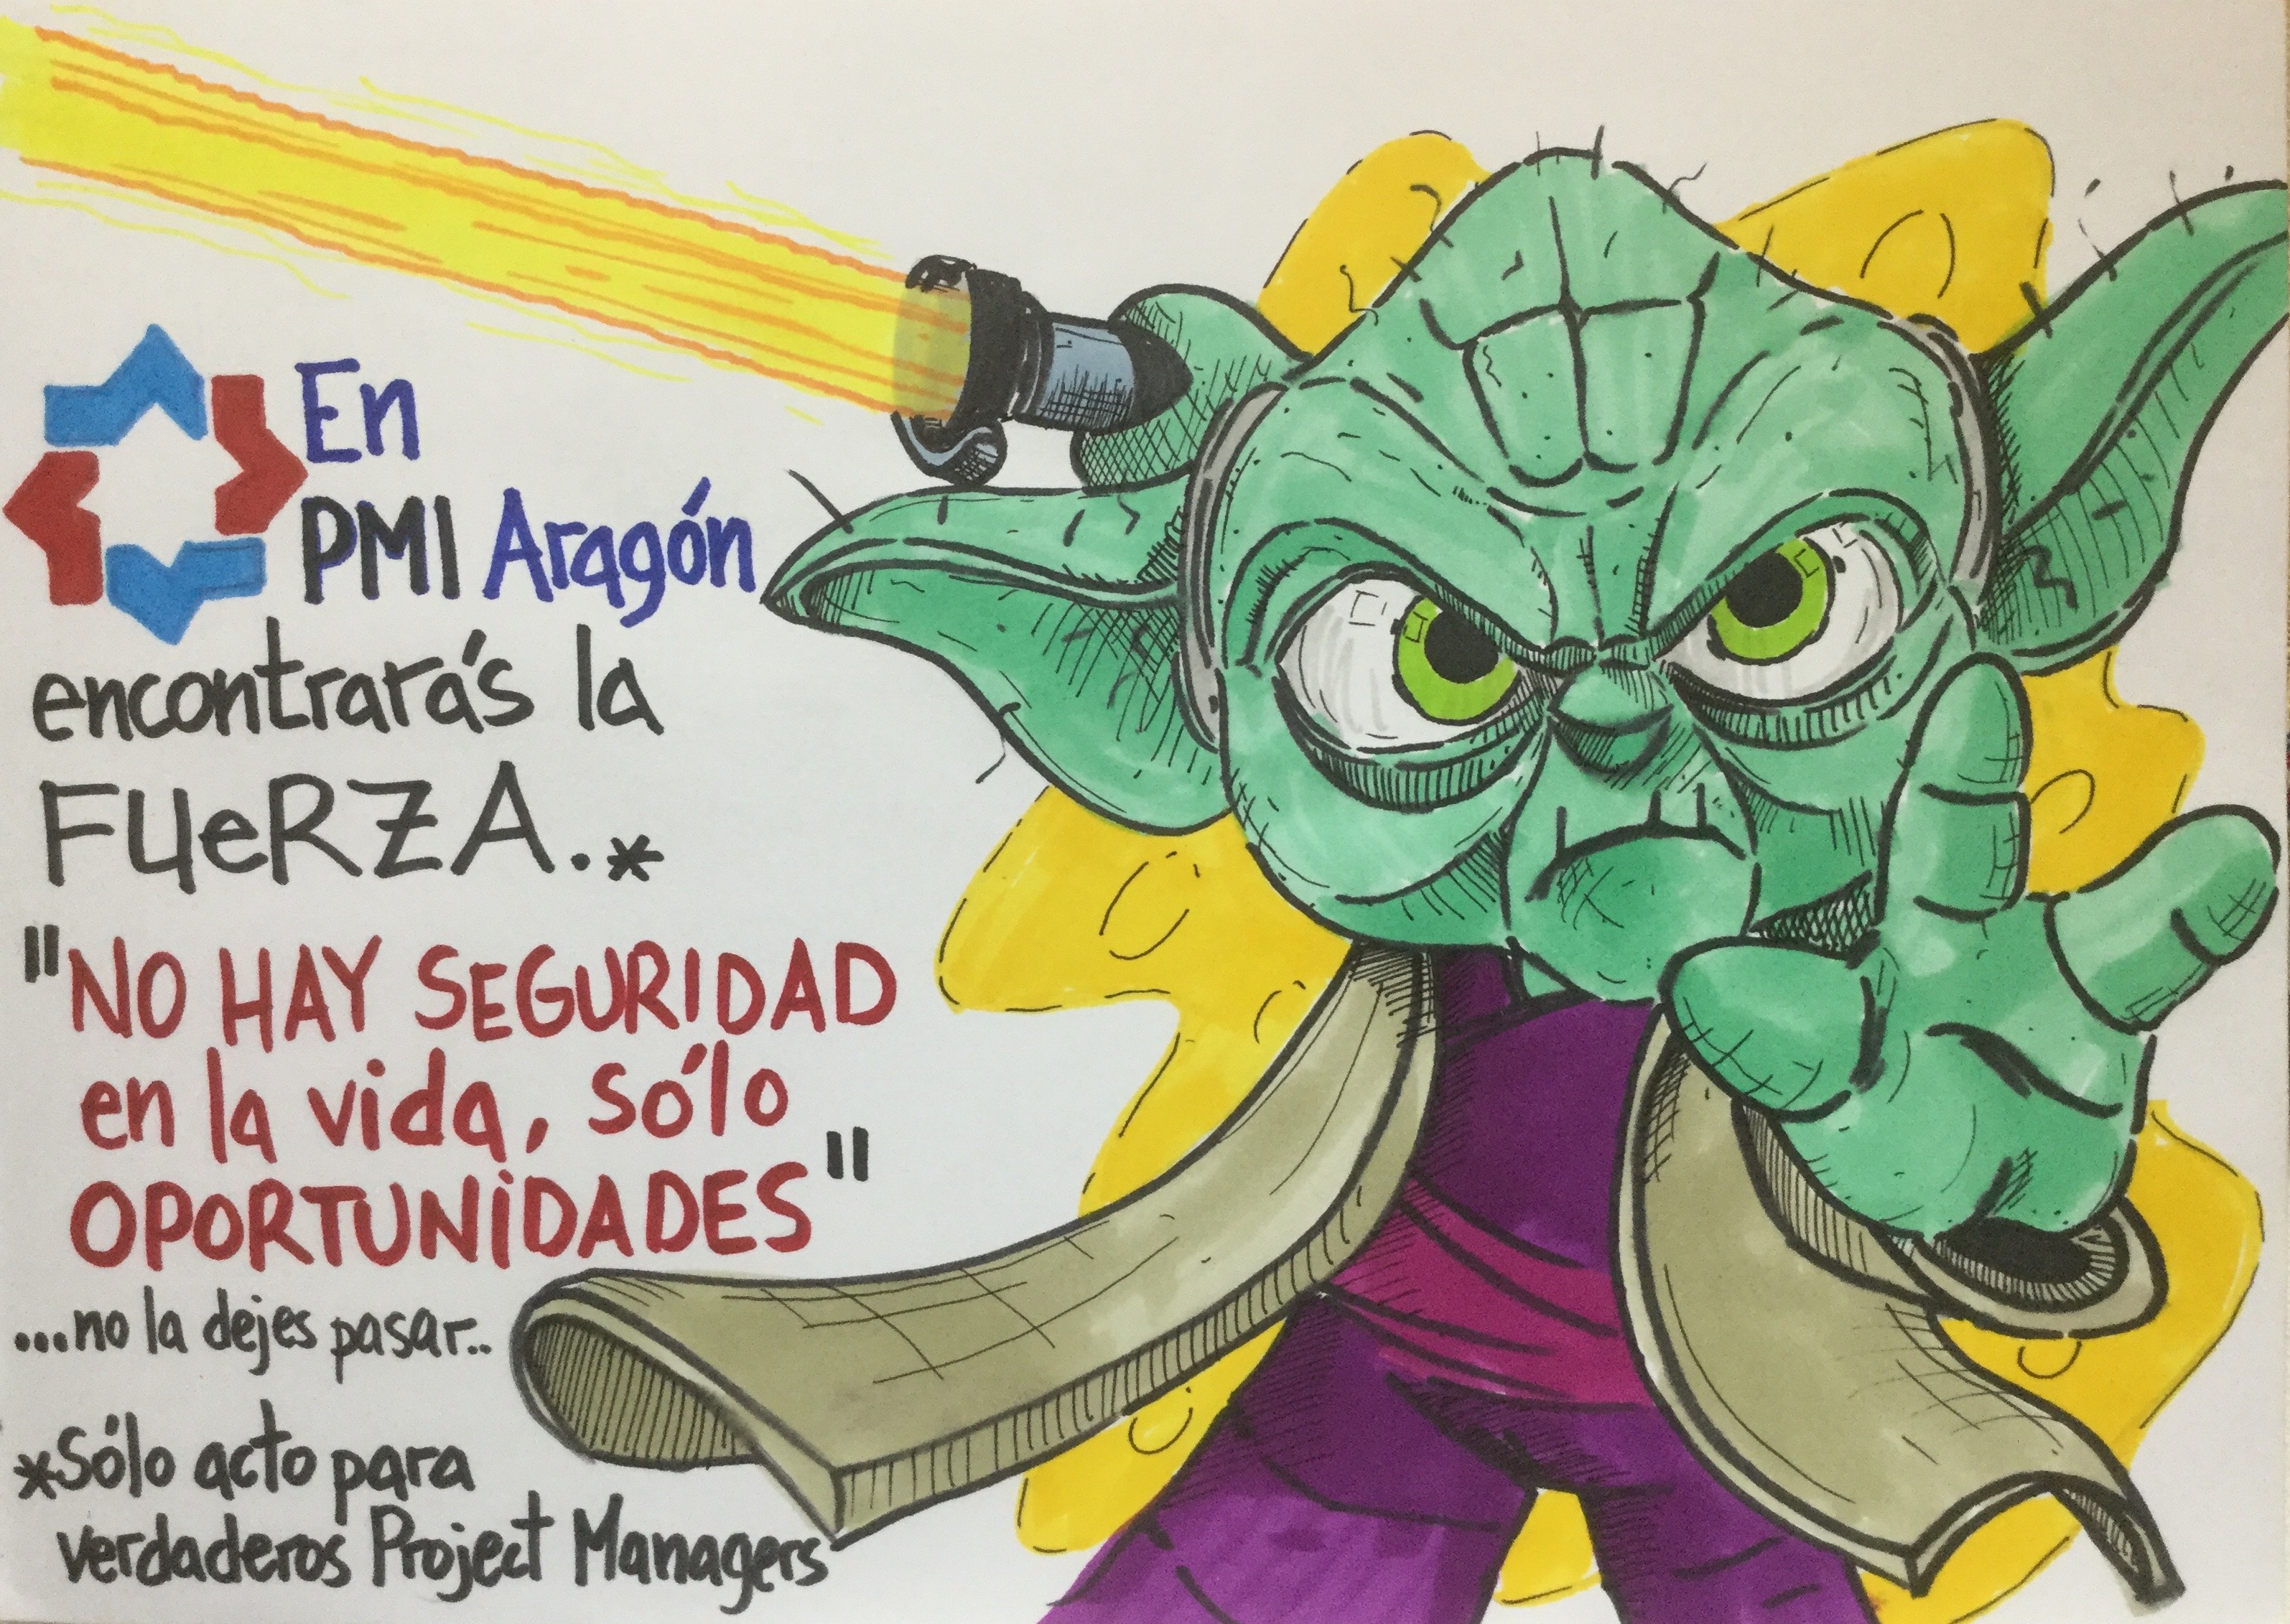 En
PMI Aragón
encontrarás la
FUeRZA.*
"NO HAY SEGURIDAD
en la vida, sólo
OPORTUNiDADES"
...no la dejes pasar..
*Sólo acto para
verdaderos Project Managers